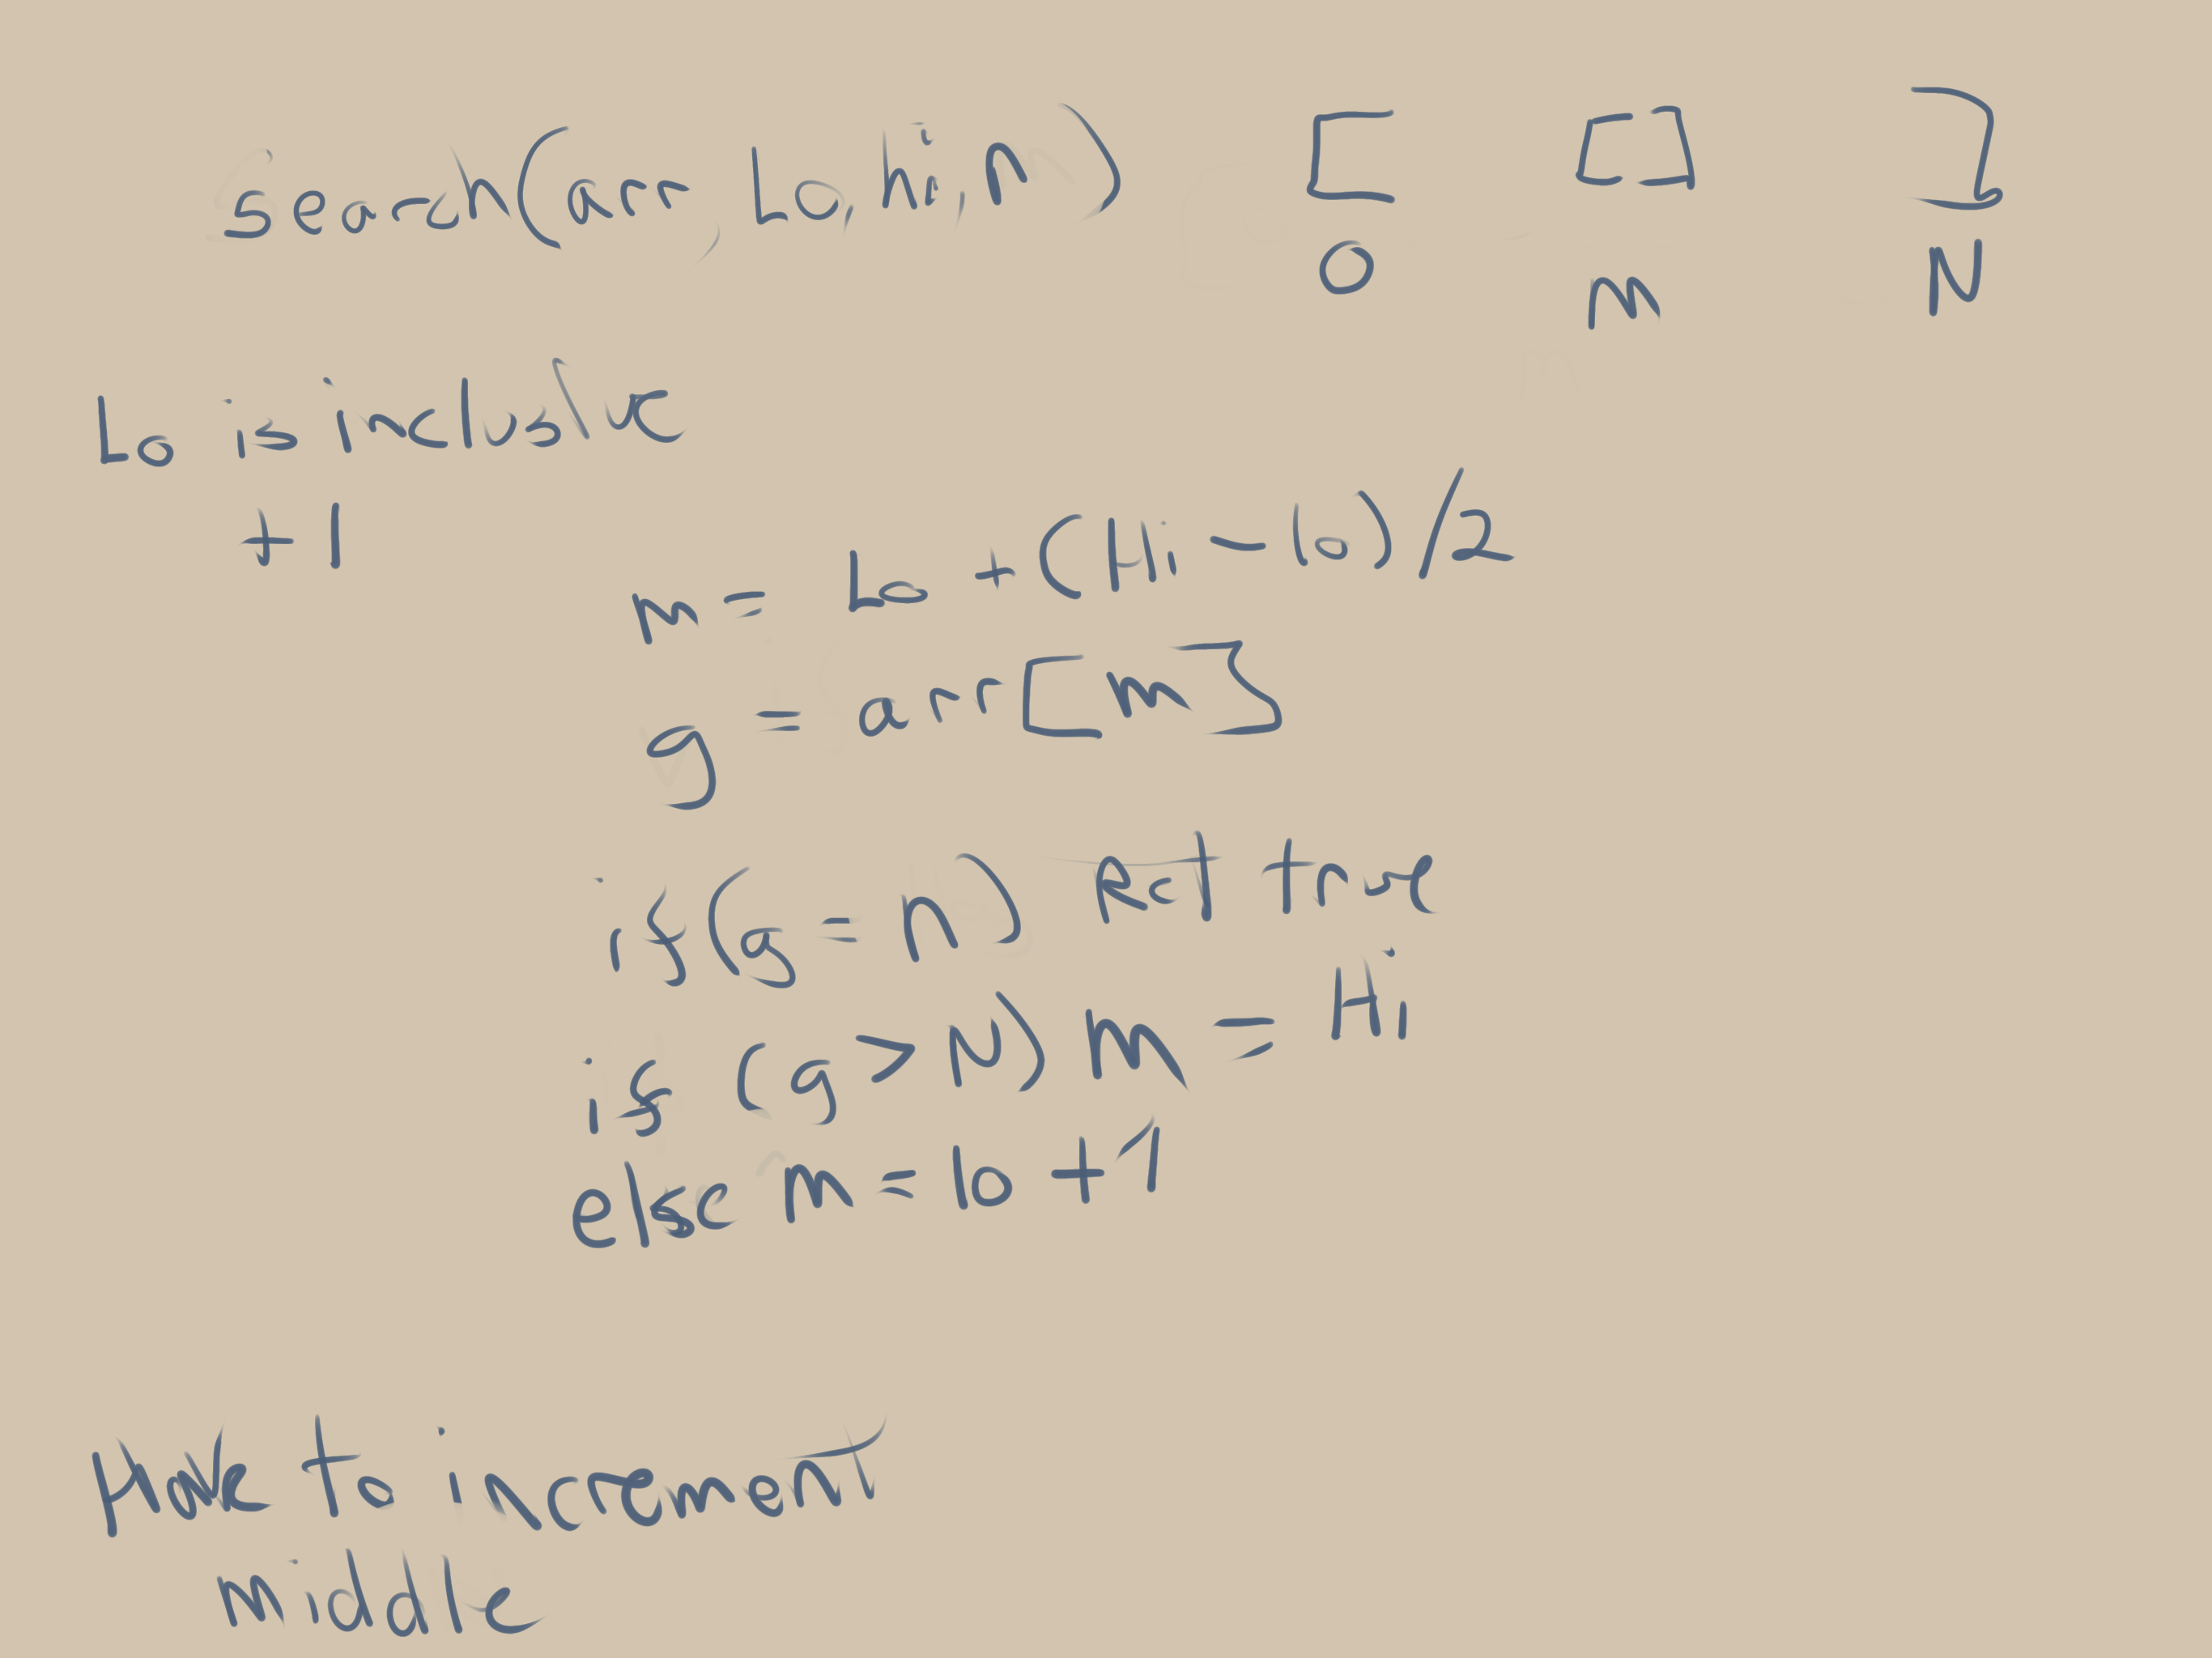 Search(arr, Lo, hi, n) [ [ ] ]
0 m N
Lo is inclusive
+1
m = Lo + (Hi - lo)/2
g = arr[m]
if(g = n) Ret true
if (g > N) m = Hi
else m = lo + 1
Have to increment
middle